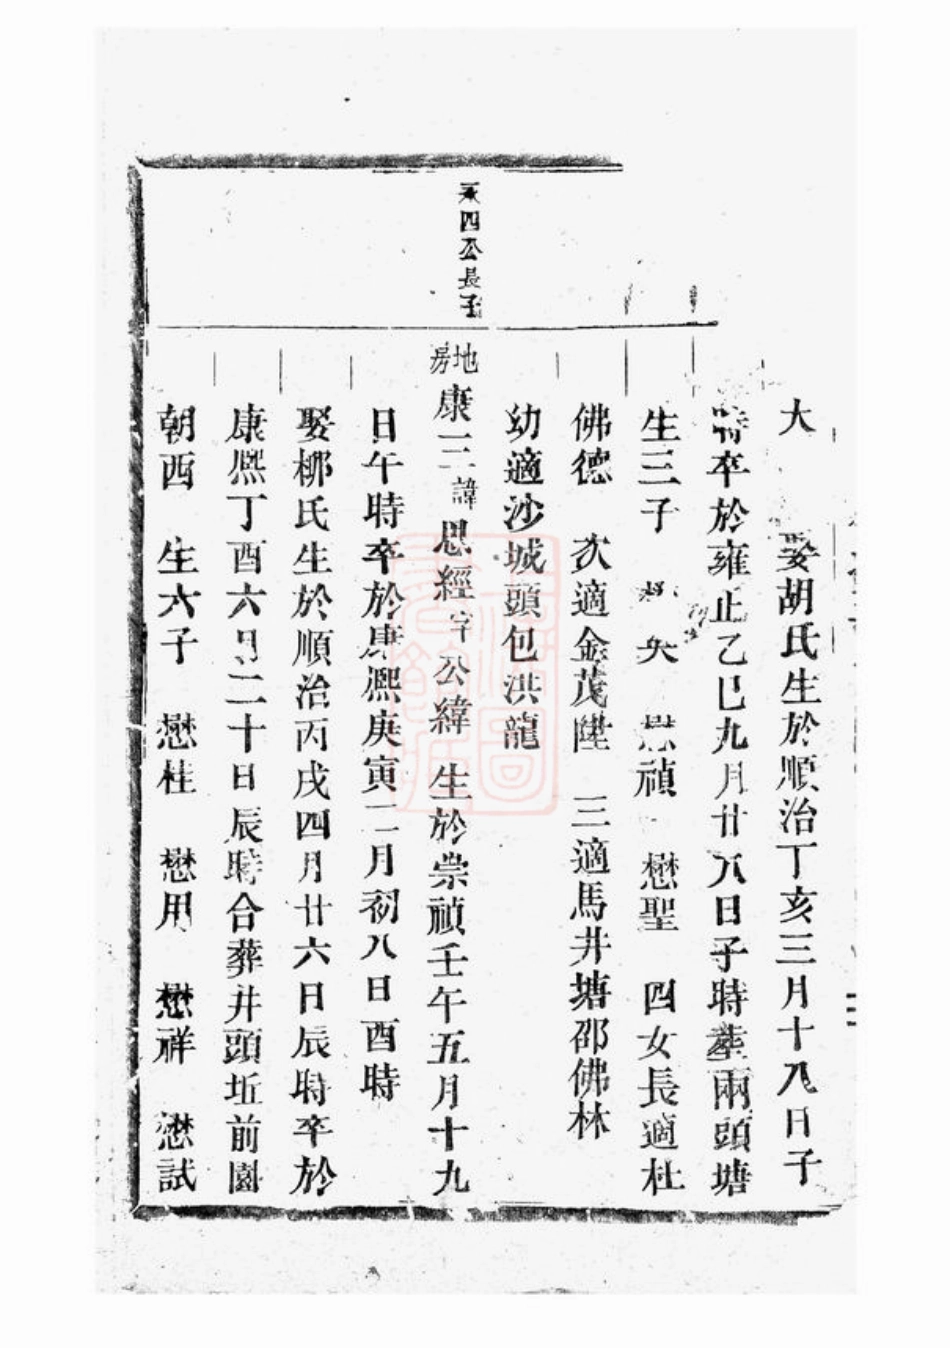 大　娶胡氏生於順治丁亥三月十八日子
時卒於雍正乙巳九月廿八日子時葬兩頭塘
生三子　懋禎　懋聖　四女長適杜
佛德　次適金茂陞　三適馬井塘邵佛林
幼適沙城頭包洪龍
四公長子
地房　康三諱思經字公緯　生於崇禎壬午五月十九
日午時卒於康熙庚寅二月初八日酉時
娶柳氏生於順治丙戌四月廿六日辰時卒於
康熙丁酉六月二十日辰時合葬井頭坵前園
朝西　生六子　懋桂　懋用　懋祥　懋試